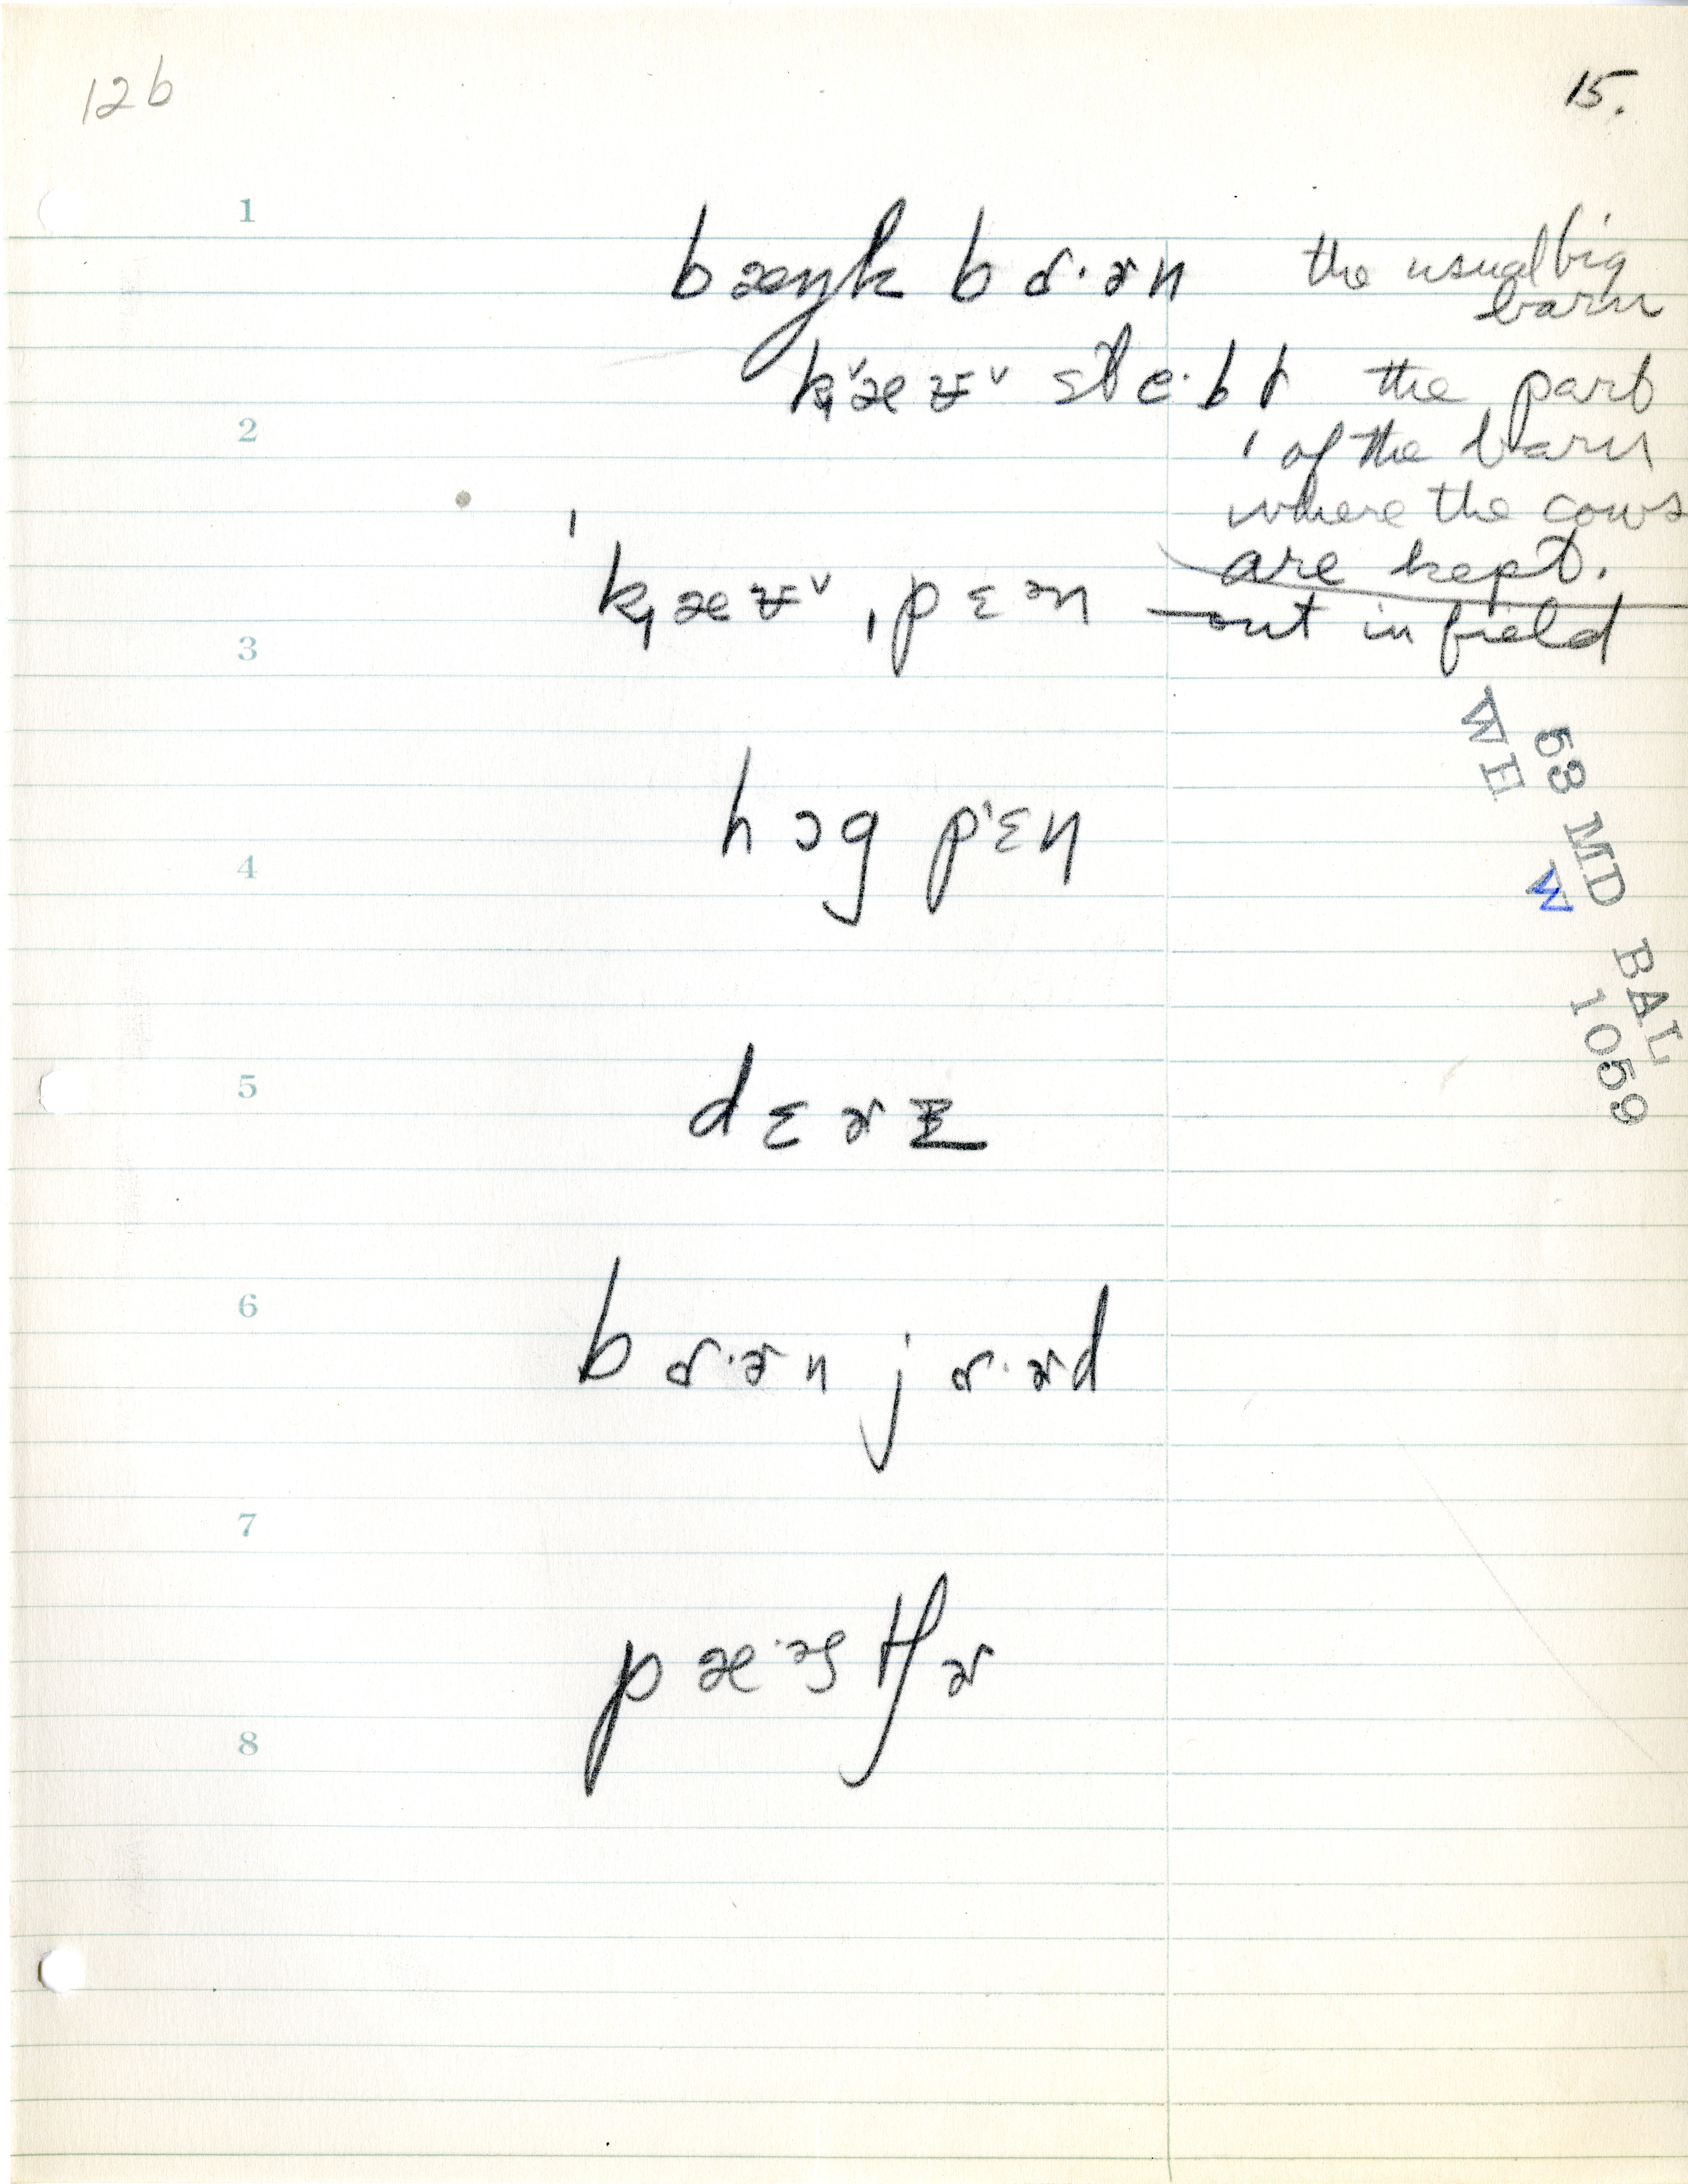 12b
15.
1
bæŋk bɑ·ɚn the usual big
barn
k̟ˇæʊˇ ste·bɫ the part
2
of the barn
where the cows
are kept.
ˈk̟æʊˇ ˌpɛən out in field
3
hɔg pʻɛn
4
dɛɚɪ
5
6
bɑ·ɚn jɑ·ɚd
7
pæ·əstʃɚ
8
53 MD BAL
WE W 1059